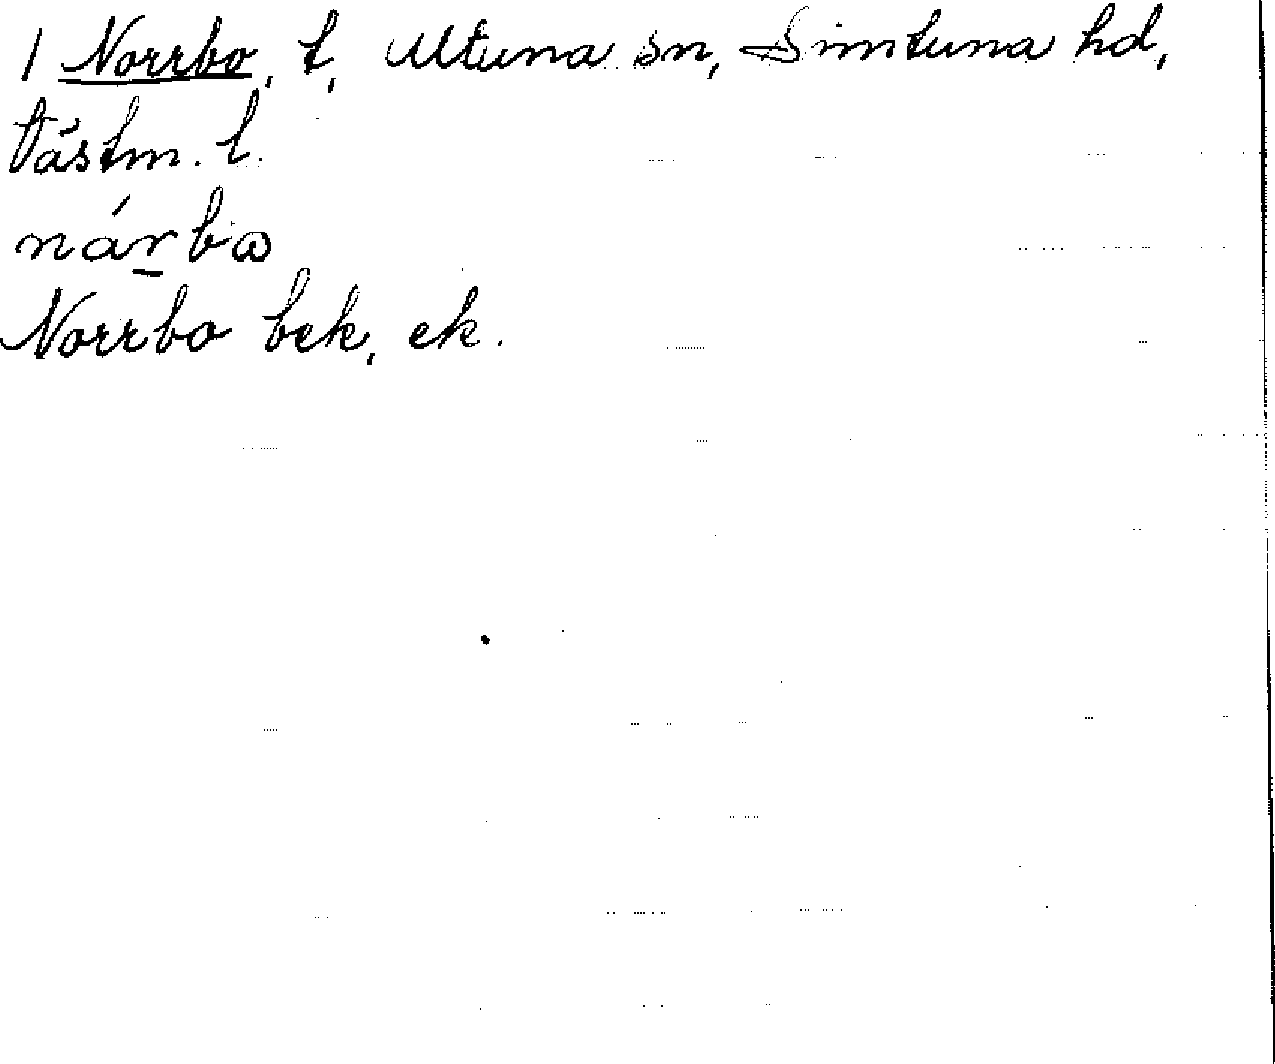 1 Norrbo, t, Altuna sn, Simtuna hd,
Västm. l.
nárbω
Norrbo bek, ek.